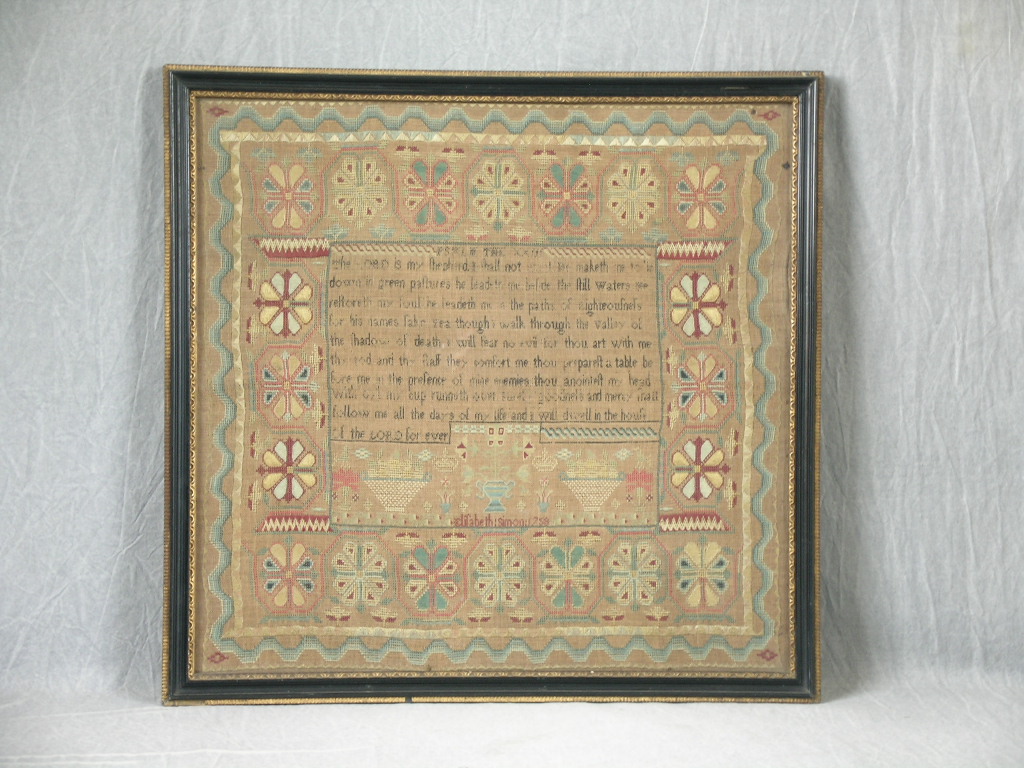 The LORD is my shepherd I shall not want he maketh me to lie
down in green pastures he leadeth me beside the still waters he
restoreth my soul he leadeth me in the paths of righteousness
for his names sake yea though i walk through the valley of
the shadow of death i will fear no evil for thou art with me
thy rod and thy staff they comfort me thou preparest a table be
fore me in the presence of mine enemies thou anointest my head
with oyl my cup runneth over surely goodness and mercy shall
follow me all the days of my life and i will dwell in the house
of the LORD for ever